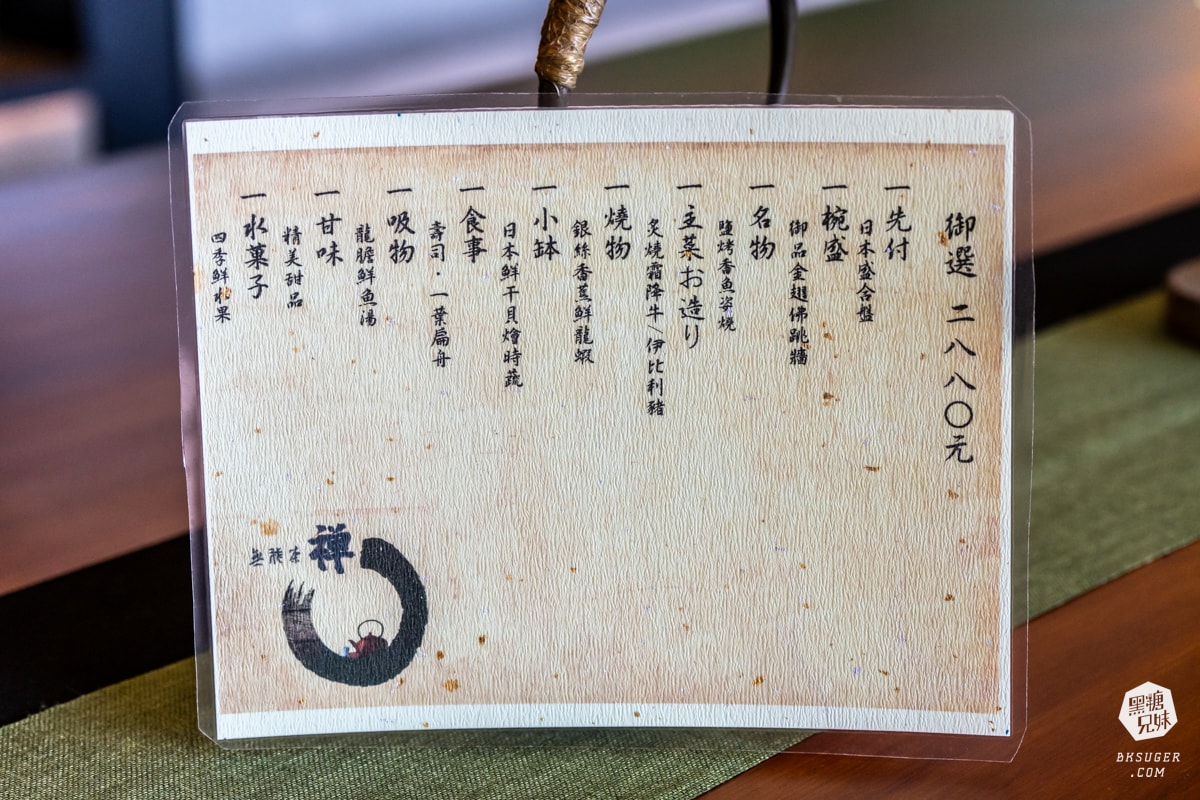 御選 二八八〇元
一先付
日本盛合盤
一椀盛
御品金翅佛跳牆
一名物
鹽烤香魚姿燒
一主菜お造り
炙燒霜降牛/伊比利豬
一燒物
銀絲香蕉鮮龍蝦
一小缽
日本鮮干貝燴時蔬
一食事
壽司·一葉扁舟
一吸物
龍膽鮮魚湯
一甘味
精美甜品
一水菓子
四季鮮水果
禪
黑糖
兄妹
BKSUGER
.COM